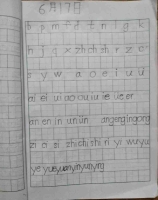 6月17日
b p m f d t n l g k
h j q x zh ch sh r z c
s y w a o e i u ü
ai ei ui ao ou iu ie üe er
an en in un ün ang eng ing ong
zi ci si zhi chi shi ri yi wu yu
ye yue yuan yin yun ying